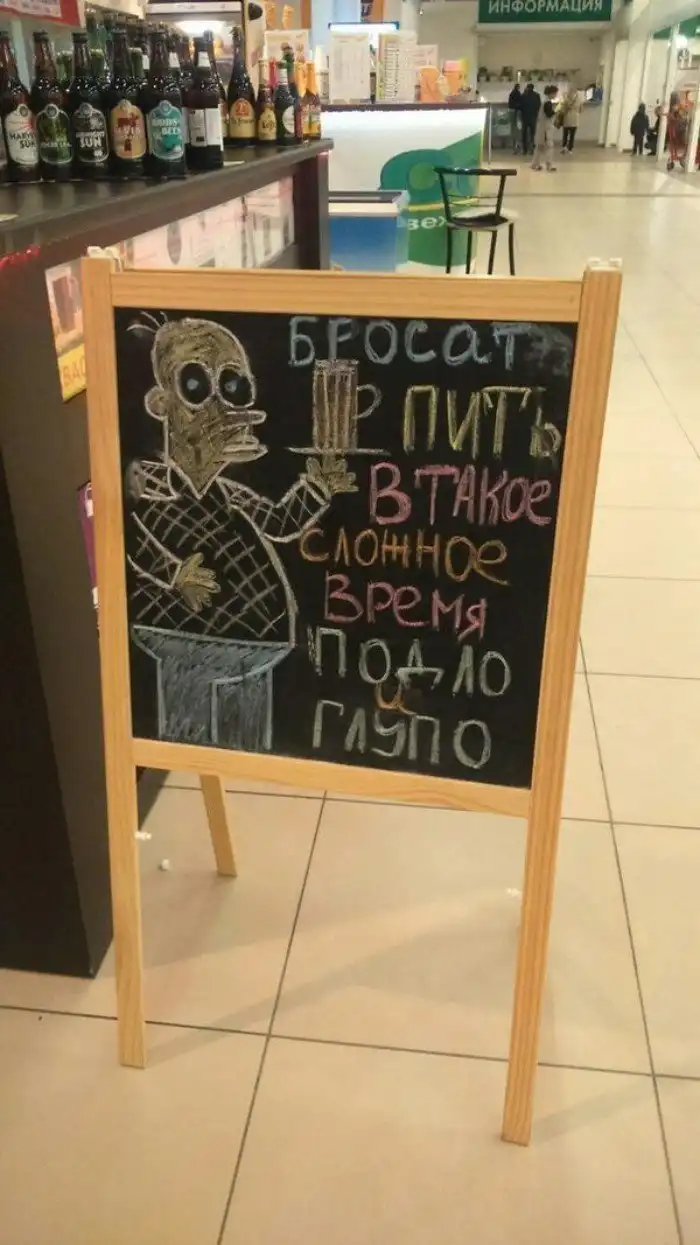 ИНФОРМАЦИЯ
БРОСАТЬ
ПИТЬ
В ТАКОЕ
СЛОЖНОЕ
ВРЕМЯ
ПОДЛО
И
ГЛУПО